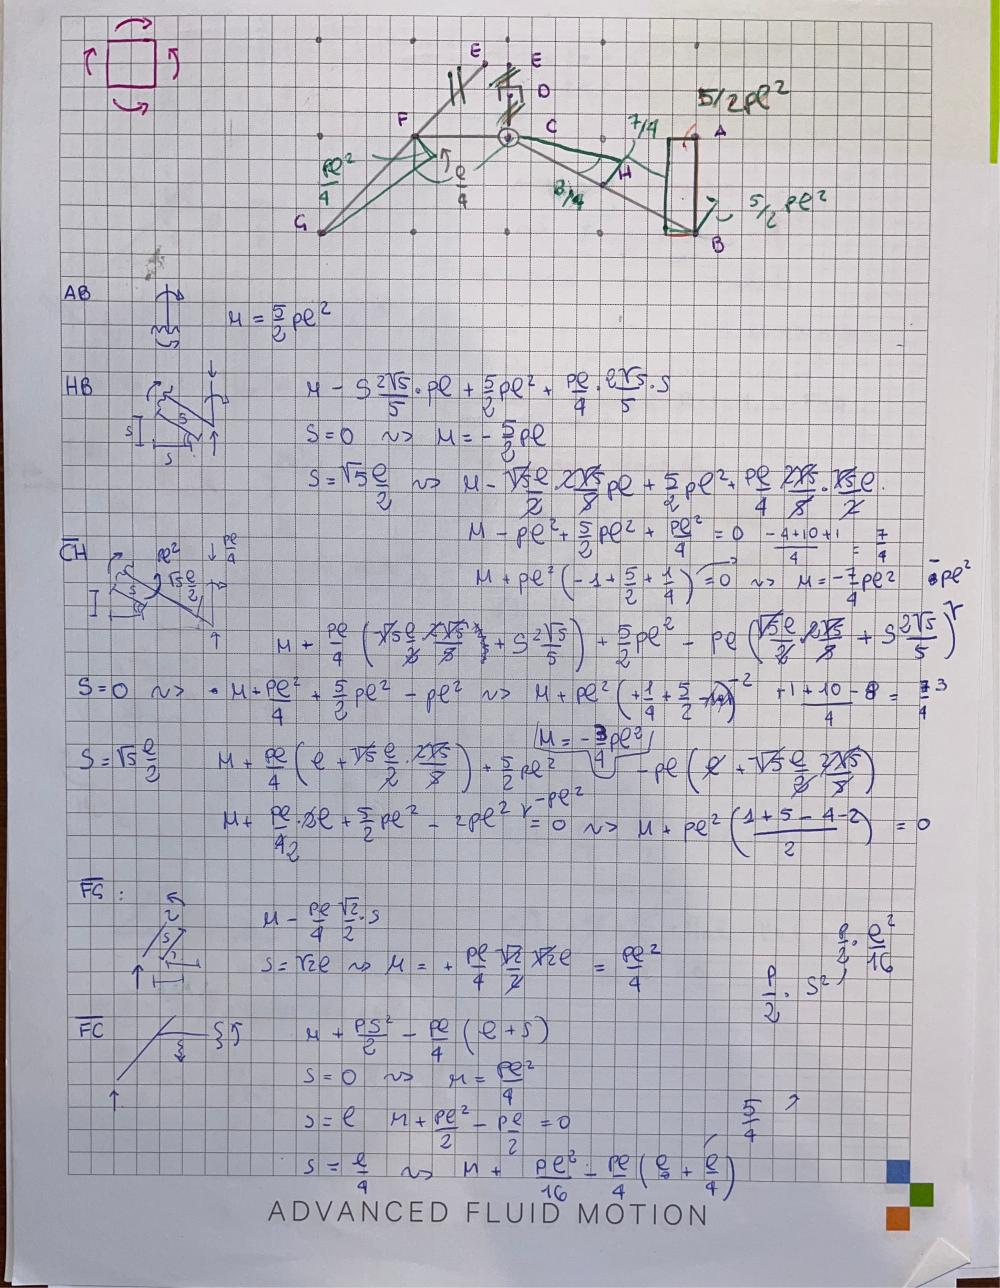 E E
D
5/2pl²
F C 7/4 A
pl²/4 l/4 H
3/4 5/2 pl²
G B
AB
M = 5/2 pl²
HB M - S 2√5/5 · pl + 5/2 pl² + pl/4 · 2√5/5 · S
S S
S = 0 ~> M = - 5/2 pl
S = √5 l/2 ~> M - √5l/2 2√5/5 pl + 5/2 pl² + pl/4 2√5/5 · √5l/2
M - pl² + 5/2 pl² + pl²/4 = 0 -4+10+1/4 = 7/4
CH pl² pl/4
S √5 l/2 M + pl² (-1 + 5/2 + 1/4) = 0 ~> M = -7/4 pl² -pl²
M + pl/4 (√5l/2 2√5/5 + S 2√5/5) + 5/2 pl² - pl (√5l/2 2√5/5 + S 2√5/5)
S = 0 ~> M + pl²/4 + 5/2 pl² - pl² ~> M + pl² (+1/4 + 5/2 -2 +1+10-8/4 = 3/4
M = -3/4 pl²
S = √5 l/2 M + pl/4 (l + √5 l/2 · 2√5/5) + 5/2 pl² - pl (l + √5 l/2 2√5/5)
-pl²
M + pl/42 · 2l + 5/2 pl² - 2pl² = 0 ~> M + pl² (1+5-4-2/2) = 0
FG :
S M - pl/4 √2/2 · S
S = √2l ~> M = + pl/4 √2/2 √2l = pl²/4
p/2 · l²/16
p/2 · S²
FC M + pS²/2 - pl/4 (l + S)
S S = 0 ~> M = pl²/4
S = l M + pl²/2 - pl/2 = 0
5/4
S = l/4 ~> M + pl²/16 - pl/4 (l + l/4)
ADVANCED FLUID MOTION